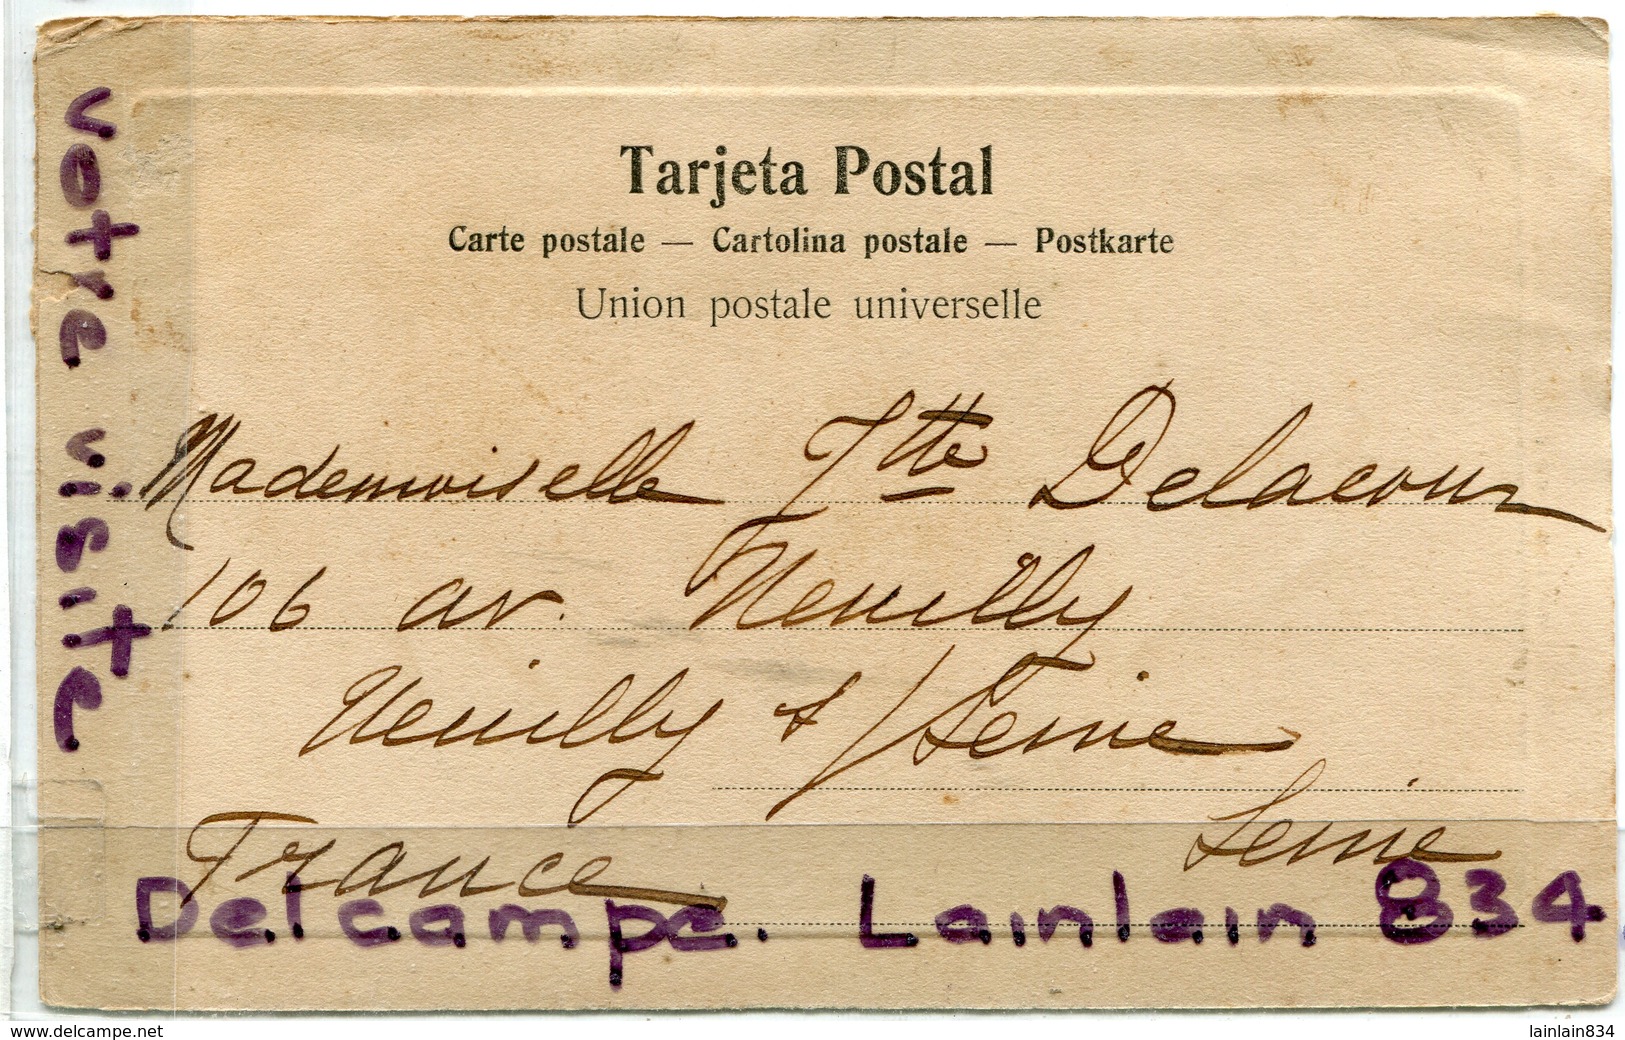 Tarjeta Postal
Carte postale — Cartolina postale — Postkarte
Union postale universelle
Mademoiselle Ytte Delacour
106 av. Neuilly
Neuilly s/Seine
Seine
France
votre visite
Delcampe. Lainlain 834
www.delcampe.net
lainlain834